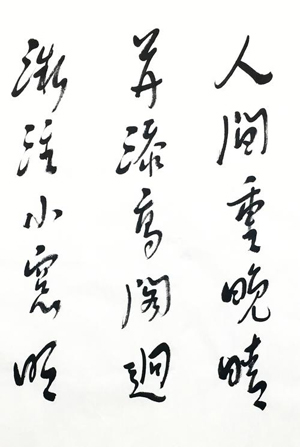 人間重晚晴
并添高閣迥
微注小窻明